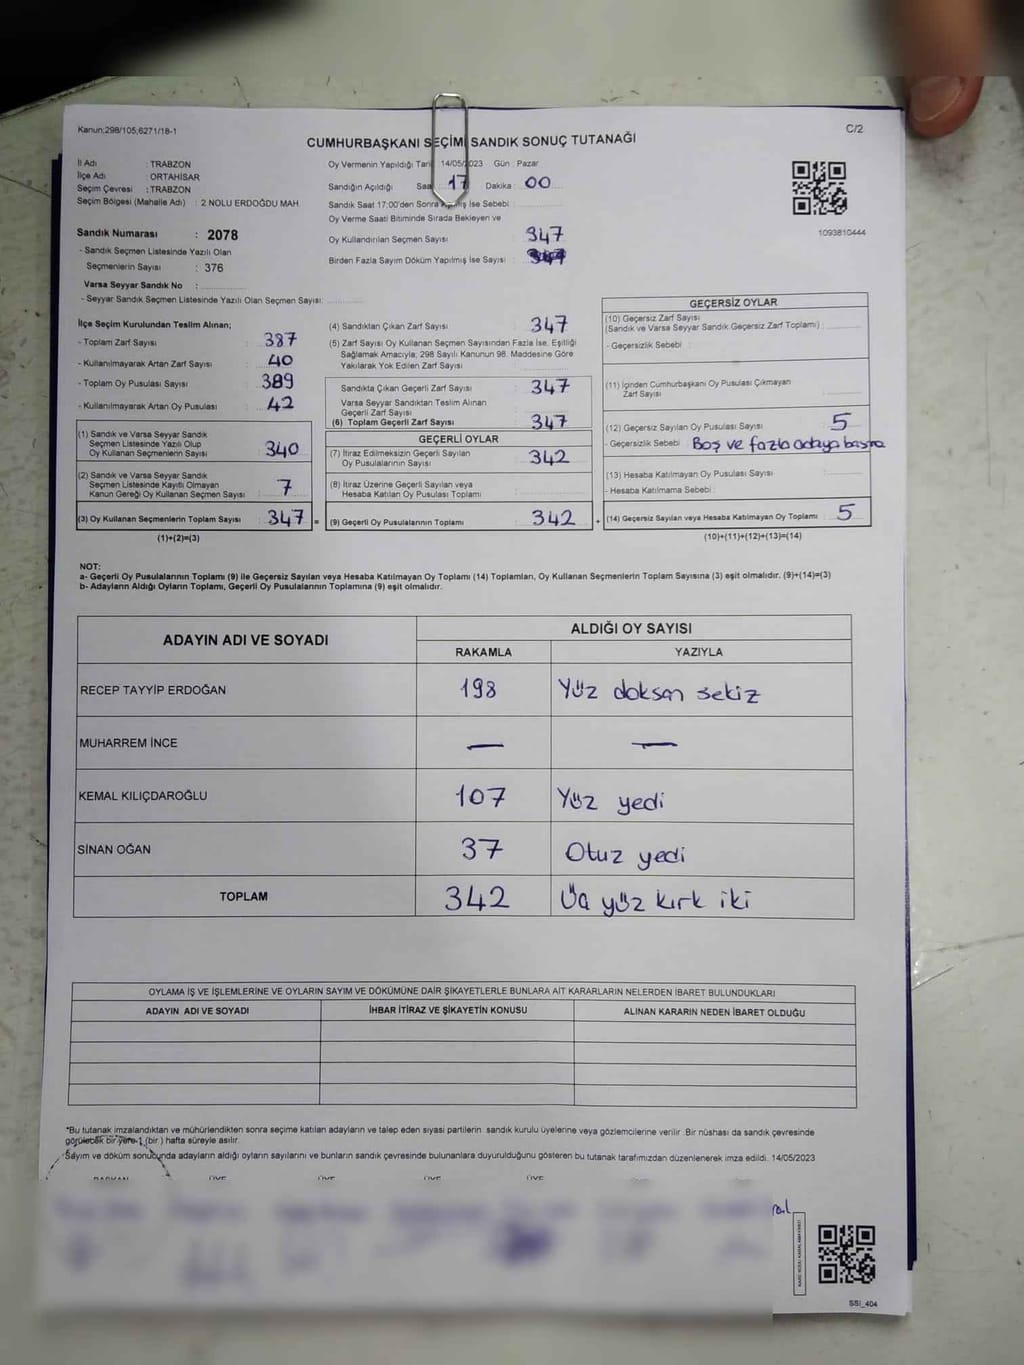 Kanun:298/105;6271/18-1
C/2
CUMHURBAŞKANI SEÇİMİ SANDIK SONUÇ TUTANAĞI
İl Adı : TRABZON
İlçe Adı : ORTAHİSAR
Seçim Çevresi : TRABZON
Seçim Bölgesi (Mahalle Adı) : 2 NOLU ERDOĞDU MAH.
Sandık Numarası : 2078
- Sandık Seçmen Listesinde Yazılı Olan
Seçmenlerin Sayısı : 376
Varsa Seyyar Sandık No :
- Seyyar Sandık Seçmen Listesinde Yazılı Olan Seçmen Sayısı:
Oy Vermenin Yapıldığı Tarih 14/05/2023 Gün : Pazar
Sandığın Açıldığı Saat 17 Dakika : 00
Sandık Saat 17:00'den Sonra Açılmış İse Sebebi :
Oy Verme Saati Bitiminde Sırada Bekleyen ve
Oy Kullandırılan Seçmen Sayısı : 347
Birden Fazla Sayım Döküm Yapılmış İse Sayısı :
1093810444
İlçe Seçim Kurulundan Teslim Alınan;
- Toplam Zarf Sayısı : 387
- Kullanılmayarak Artan Zarf Sayısı : 40
- Toplam Oy Pusulası Sayısı : 389
- Kullanılmayarak Artan Oy Pusulası : 42
(1) Sandık ve Varsa Seyyar Sandık
Seçmen Listesinde Yazılı Olup
Oy Kullanan Seçmenlerin Sayısı : 340
(2) Sandık ve Varsa Seyyar Sandık
Seçmen Listesinde Kayıtlı Olmayan
Kanun Gereği Oy Kullanan Seçmen Sayısı : 7
(3) Oy Kullanan Seçmenlerin Toplam Sayısı : 347 =
(1)+(2)=(3)
(4) Sandıktan Çıkan Zarf Sayısı : 347
(5) Zarf Sayısı Oy Kullanan Seçmen Sayısından Fazla İse, Eşitliği
Sağlamak Amacıyla; 298 Sayılı Kanunun 98. Maddesine Göre
Yakılarak Yok Edilen Zarf Sayısı :
Sandıkta Çıkan Geçerli Zarf Sayısı : 347
Varsa Seyyar Sandıktan Teslim Alınan
Geçerli Zarf Sayısı :
(6) Toplam Geçerli Zarf Sayısı : 347
GEÇERLİ OYLAR
(7) İtiraz Edilmeksizin Geçerli Sayılan
Oy Pusulalarının Sayısı : 342
(8) İtiraz Üzerine Geçerli Sayılan veya
Hesaba Katılan Oy Pusulası Toplamı :
(9) Geçerli Oy Pusulalarının Toplamı : 342 +
GEÇERSİZ OYLAR
(10) Geçersiz Zarf Sayısı
(Sandık ve Varsa Seyyar Sandık Geçersiz Zarf Toplamı) :
- Geçersizlik Sebebi :
(11) İçinden Cumhurbaşkanı Oy Pusulası Çıkmayan
Zarf Sayısı :
(12) Geçersiz Sayılan Oy Pusulası Sayısı : 5
- Geçersizlik Sebebi : Boş ve fazla adaya basma
(13) Hesaba Katılmayan Oy Pusulası Sayısı :
- Hesaba Katılmama Sebebi :
(14) Geçersiz Sayılan veya Hesaba Katılmayan Oy Toplamı : 5
(10)+(11)+(12)+(13)=(14)
NOT:
a- Geçerli Oy Pusulalarının Toplamı (9) ile Geçersiz Sayılan veya Hesaba Katılmayan Oy Toplamı (14) Toplamları, Oy Kullanan Seçmenlerin Toplam Sayısına (3) eşit olmalıdır. (9)+(14)=(3)
b- Adayların Aldığı Oyların Toplamı, Geçerli Oy Pusulalarının Toplamına (9) eşit olmalıdır.
ADAYIN ADI VE SOYADI
ALDIĞI OY SAYISI
RAKAMLA YAZIYLA
RECEP TAYYİP ERDOĞAN 198 Yüz doksan sekiz
MUHARREM İNCE — —
KEMAL KILIÇDAROĞLU 107 Yüz yedi
SİNAN OĞAN 37 Otuz yedi
TOPLAM 342 Üç yüz kırk iki
OYLAMA İŞ VE İŞLEMLERİNE VE OYLARIN SAYIM VE DÖKÜMÜNE DAİR ŞİKAYETLERLE BUNLARA AİT KARARLARIN NELERDEN İBARET BULUNDUKLARI
ADAYIN ADI VE SOYADI İHBAR İTİRAZ VE ŞİKAYETİN KONUSU ALINAN KARARIN NEDEN İBARET OLDUĞU
*Bu tutanak imzalandıktan ve mühürlendikten sonra seçime katılan adayların ve talep eden siyasi partilerin sandık kurulu üyelerine veya gözlemcilerine verilir. Bir nüshası da sandık çevresinde
görülebilecek bir yere 1 (bir ) hafta süreyle asılır.
*Sayım ve döküm sonucunda adayların aldığı oyların sayılarını ve bunların sandık çevresinde bulunanlara duyurulduğunu gösteren bu tutanak tarafımızdan düzenlenerek imza edildi. 14/05/2023
BAŞKAN ÜYE ÜYE ÜYE ÜYE
SSI_404